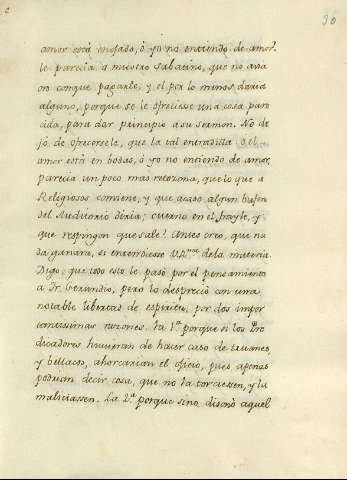 30
amor está enojada, ó yo no entiendo de amor.
le parecia à nuestro Sabatino, que no avia
con conque pagarle; y el por lo menos daria
alguno, porque se le ofreciese una cosa pare
cida, para dar principio à su sermon. No de
jó de ofrecersele, que la tal entradilla ó el
amor está en bodas, ó yo no entiendo de amor
parecia un poco mas retozona, que lo que a
Religiosos conviene, y que acaso algun bufon
del Auditorio diria; cuerno en el frayle, y
que respingon que sale! Antes creo, que na
da ganara, si entendiesse de la materia.
Digo; que todo esto le pasó por el pensamiento
a Fr. Gerundio, pero lo despreció con una
notable libertad de espiritu, por dos impor
tantissimas razones. la 1.ª porque si los Pre
dicadores huvieran de hacer caso de truanes,
y bellacos, ahorcarian el oficio, pues apenas
podrian decir cosa, que no la torciessen, y la
maliciassen. La 2.ª porque si no disonó aquel